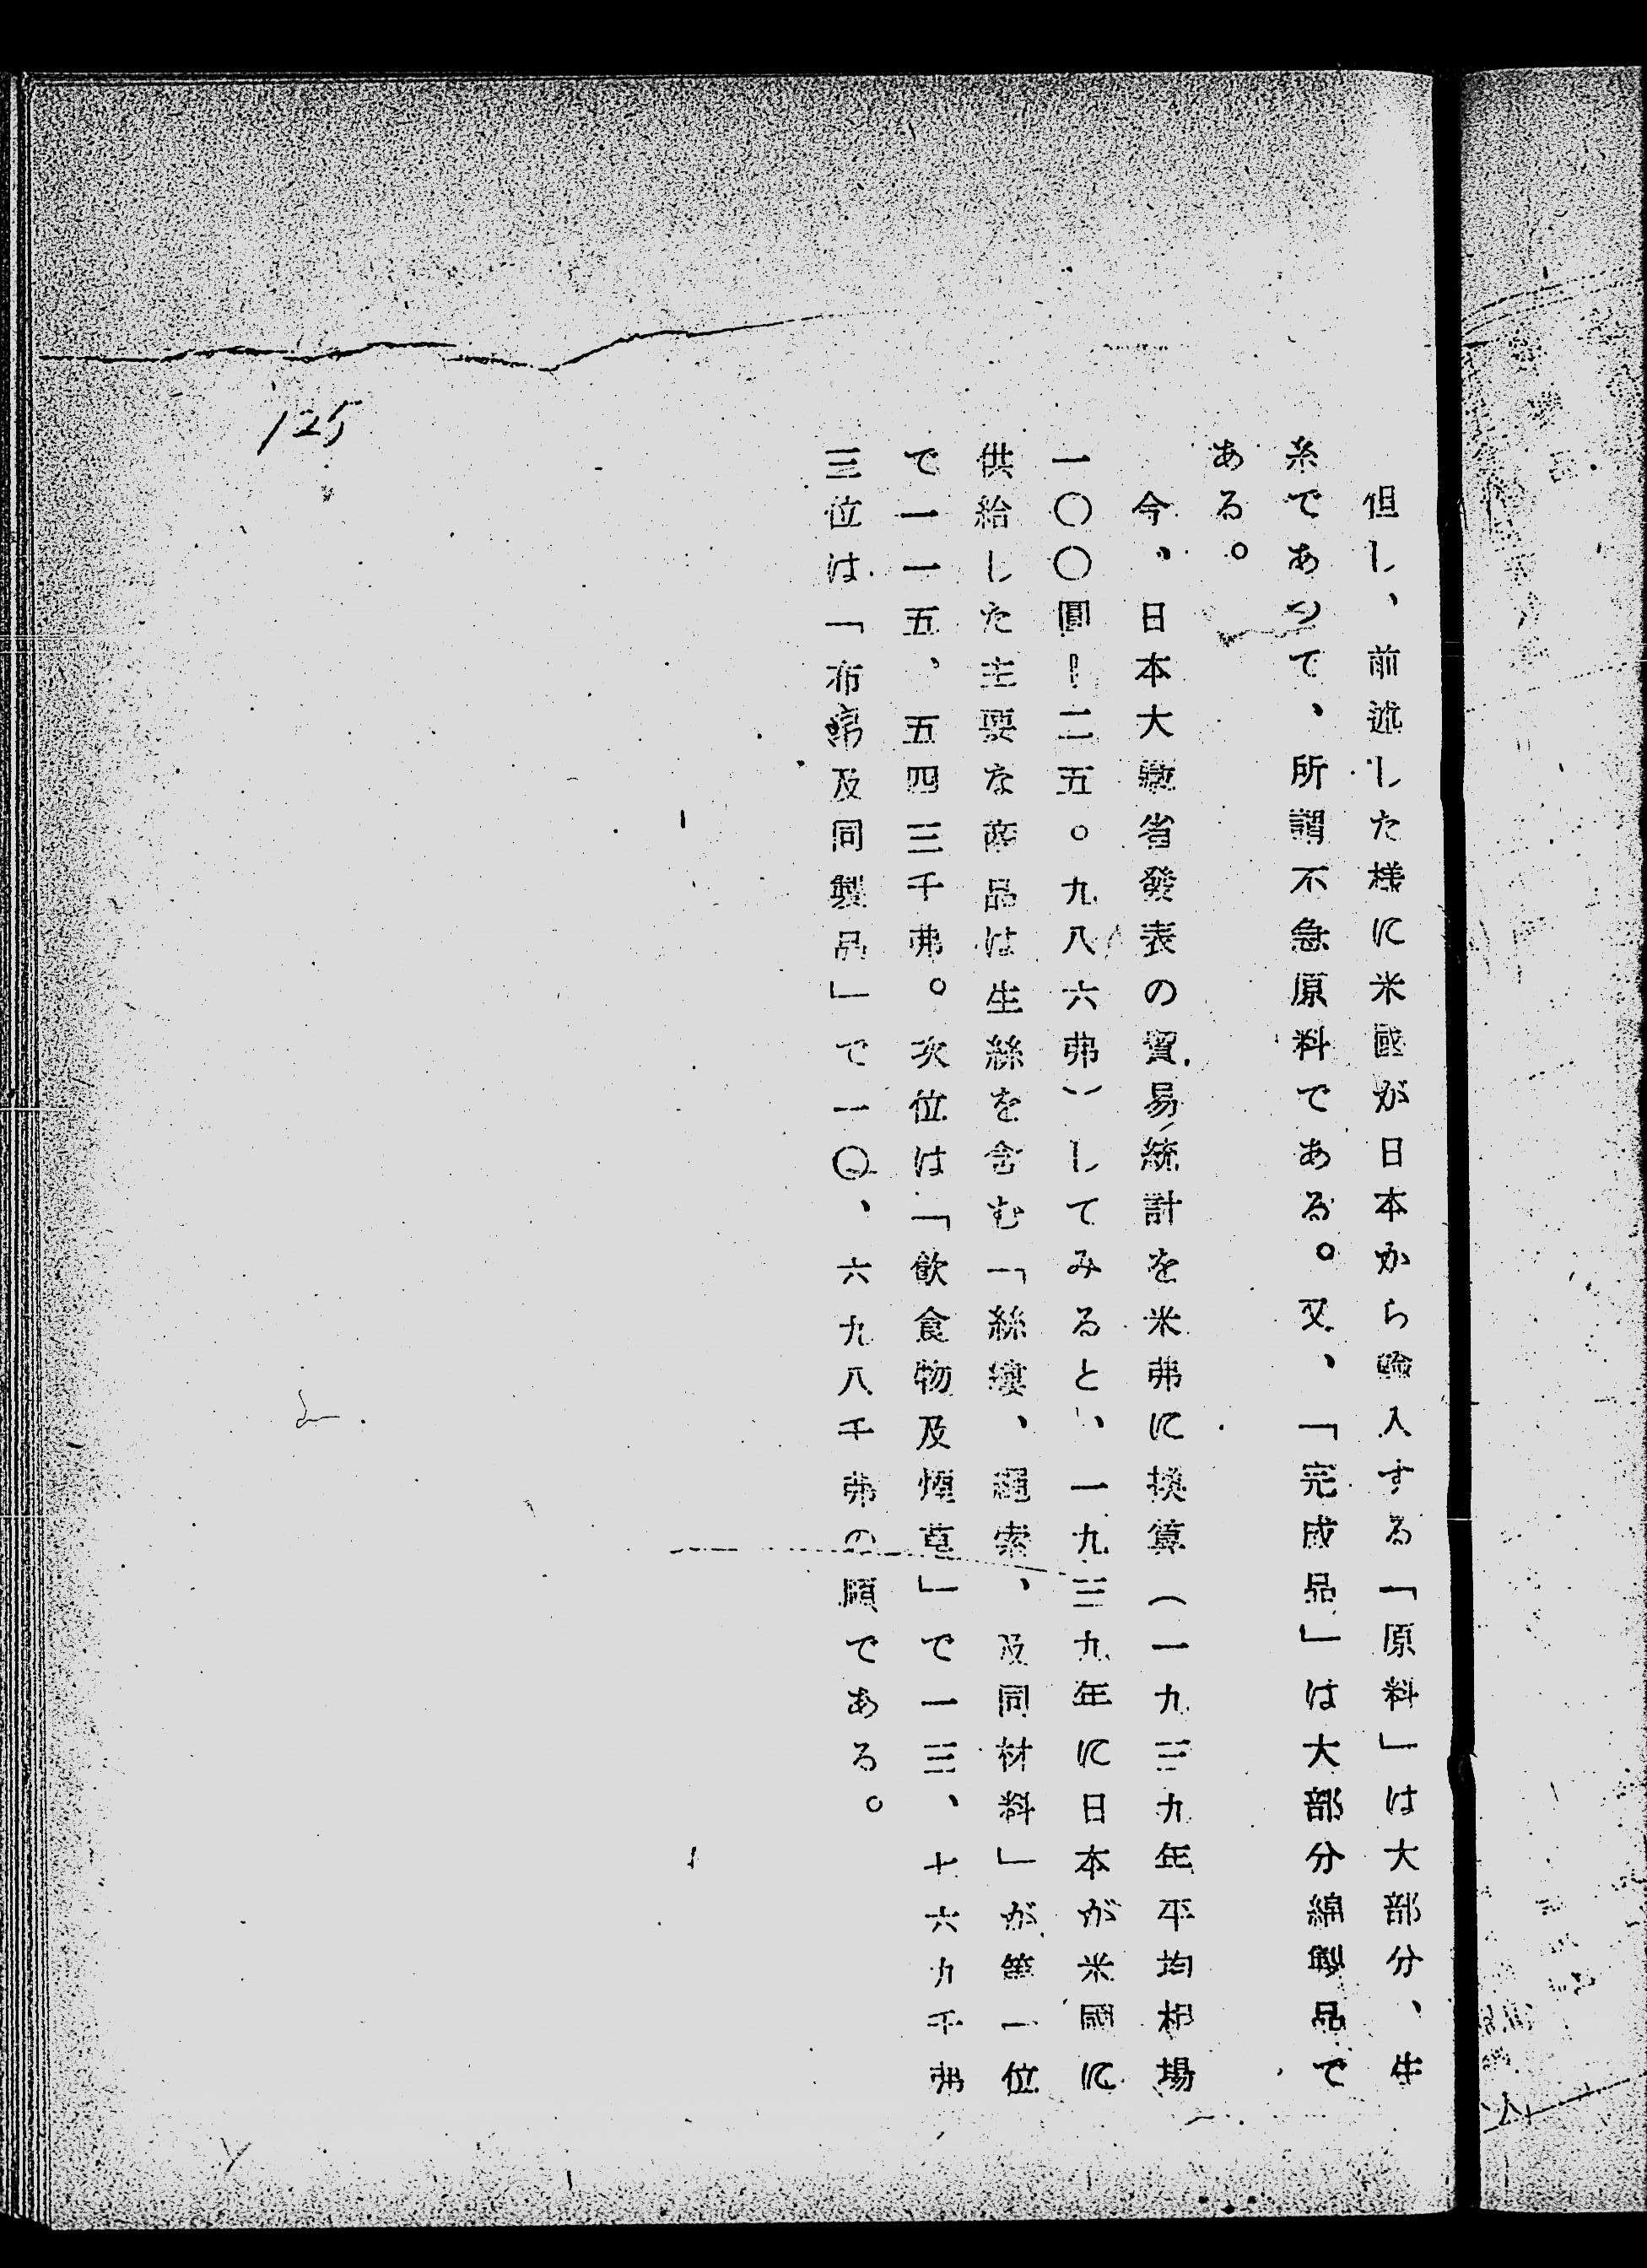 但し、前述した様に米國が日本から輸入する「原料」は大部分、生
糸であつて、所謂不急原料である。又、「完成品」は大部分綿製品で
ある。
今、日本大藏省發表の貿易統計を米弗に換算（一九三九年平均相場
一〇〇圓ー二五。九八六弗）してみると、一九三九年に日本が米國に
供給した主要な商品は生絲を含む「絲縷、繩索、及同材料」が第一位
で一一五、五四三千弗。次位は「飲食物及煙草」で一三、十六九千弗
三位は「布帛及同製品」で一〇、六九八千弗の順である。
125